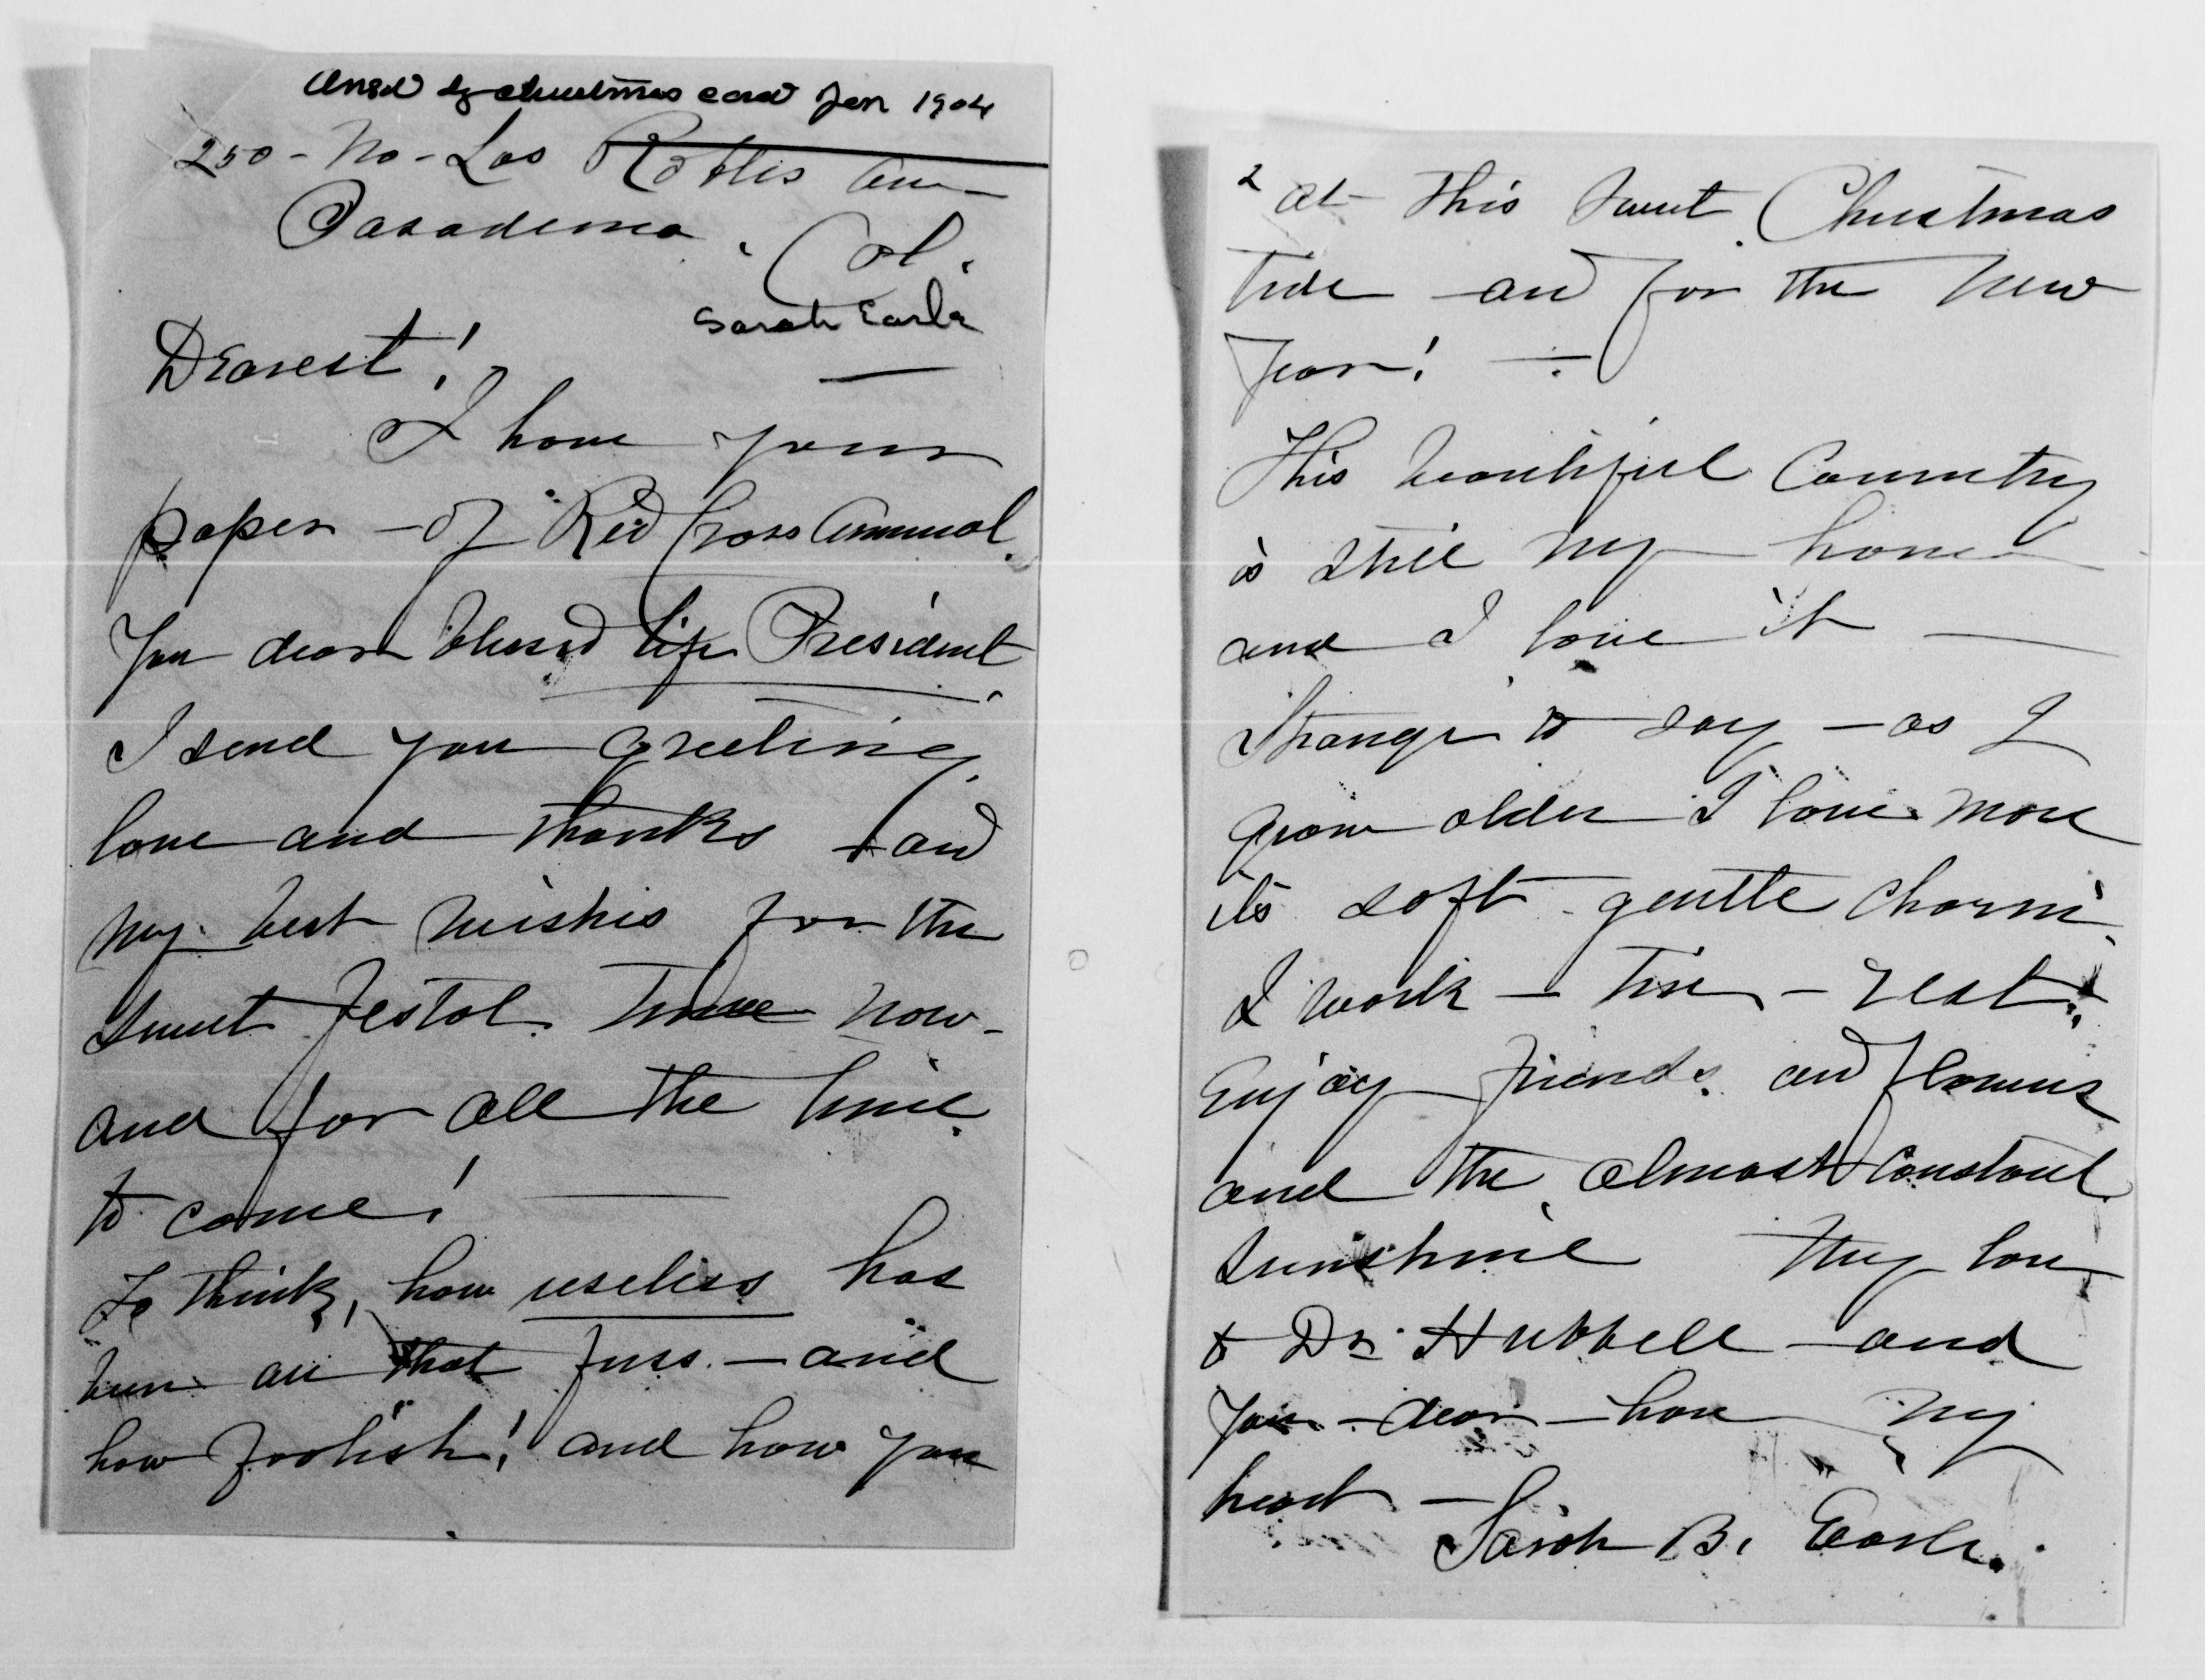 Ansd by christmas card Jan 1904
250 - No - Los Robles Ave -
Pasadena. Cal.
Sarah Earle
Dearest!
I have your
paper - of Red Cross Annual.
You dear blessed life President
I send you greeting,
love and thanks + and
my best wishes for the
sweet festal time now -
and for all the time
to come!
To think, how useless has
been all that fuss - and
how foolish! and how you
2 at this sweet Christmas
tide - and for the New
Year! -
This beautiful Country
is still my home
and I love it -
Strange to say - as I
grow older I love more
its soft gentle charm.
I work - tire - rest.
Enjoy friends and flowers
and the almost constant
sunshine My love
to Dr. Hubbell - and
you - dear - have my
heart -
Sarah B. Earle.